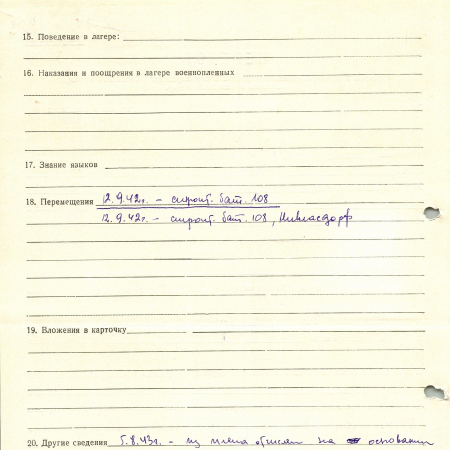 15. Поведение в лагере:
16. Наказания и поощрения в лагере военнопленных
17. Знание языков
18. Перемещения 12.9.42г. – строит. бат. 108
12.9.42г. – строит. бат. 108, Никласдорф
19. Вложения в карточку
20. Другие сведения 5.8.43г. – из плена на основании